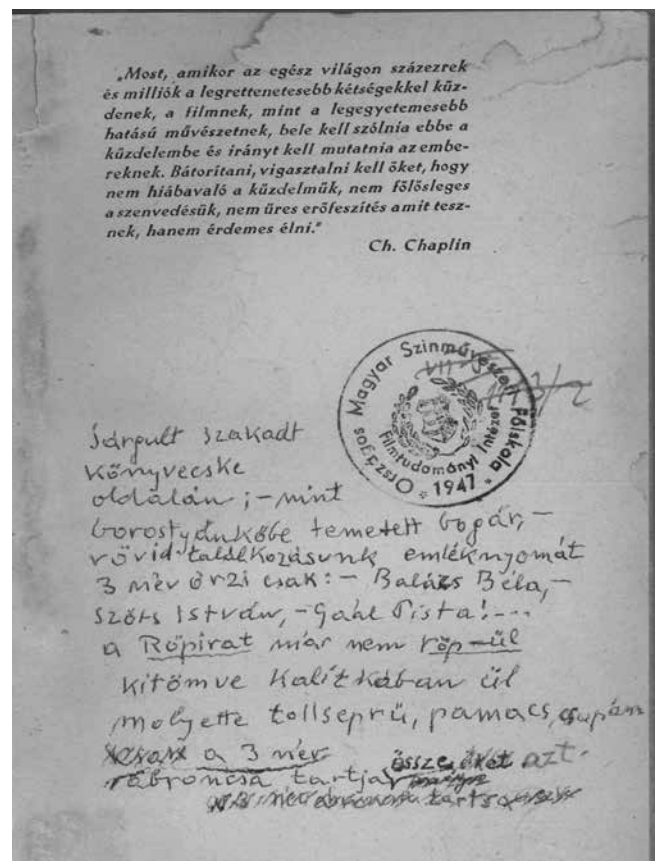 „Most, amikor az egész világon százezrek
és milliók a legrettenetesebb kétségekkel küz-
denek, a filmnek, mint a legegyetemesebb
hatású művészetnek, bele kell szólnia ebbe a
küzdelembe és irányt kell mutatnia az embe-
reknek. Bátorítani, vigasztalni kell őket, hogy
nem hiábavaló a küzdelmük, nem fölösleges
a szenvedésük, nem üres erőfeszítés amit tesz-
nek, hanem érdemes élni."
Ch. Chaplin
Országos Magyar Szinművészeti Főiskola
Filmtudományi Intézet
* 1947 *
Sárgult szakadt
Könyvecske
oldalán ;– mint
borostyánkőbe temetett bogár, –
rövid találkozásunk emléknyomát
3 név őrzi csak: – Balázs Béla, –
Szőts István, – Gaál Pista! – ...
a Röpirat már nem röp–ül
kitömve Kalitkában ül
molyette tollseprű, pamacs, csupán
a 3 név
abroncsa tartja össze azt.